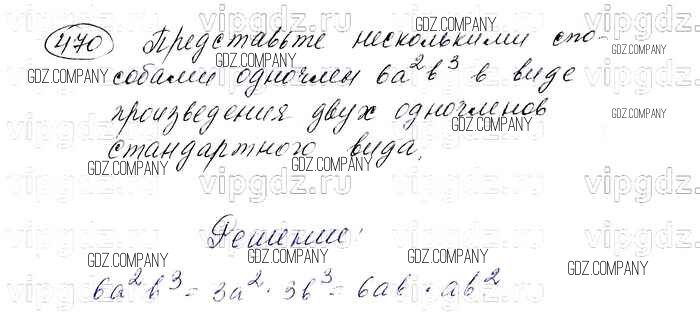 470 Представьте несколькими спо-
собами одночлен 6a²b³ в виде
произведения двух одночленов
стандартного вида.
Решение:
6a²b³ = 3a² · 3b³ = 6ab · ab²
GDZ.COMPANY
vipgdz.ru